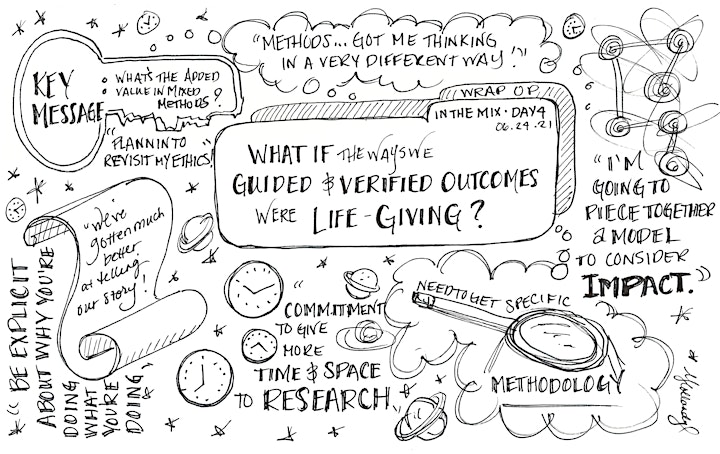 KEY
MESSAGE
• WHAT'S THE ADDED
• VALUE IN MIXED
METHODS?
"PLANNIN TO
REVISIT MY ETHICS!"
"METHODS... GOT ME THINKING
IN A VERY DIFFERENT WAY!"
WRAP UP
IN THE MIX • DAY 4
06.24.21
WHAT IF THE WAYS WE
GUIDED & VERIFIED OUTCOMES
WERE LIFE-GIVING?
"I'M
GOING TO
PIECE TOGETHER
A MODEL
TO CONSIDER
IMPACT."
"We've
gotten much
better
at telling
our story!"
"BE EXPLICIT
ABOUT WHY YOU'RE
DOING
WHAT
YOU'RE
DOING"
"COMMITMENT
TO GIVE
MORE
TIME & SPACE
TO RESEARCH"
NEED TO GET SPECIFIC
METHODOLOGY